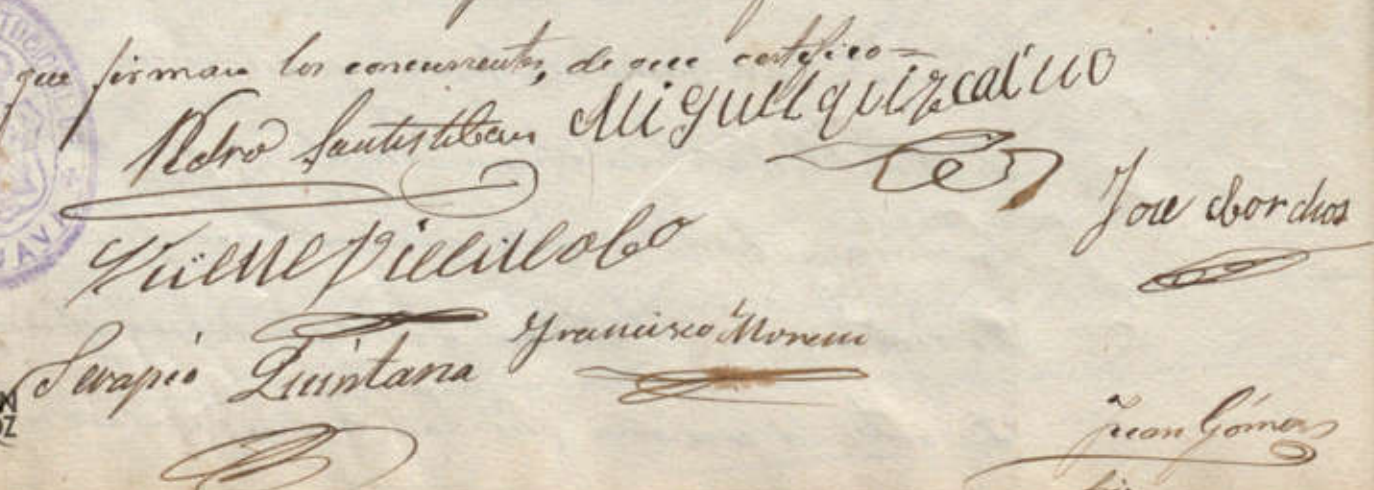 que firman los concurrentes, de que certifico=
Pedro Santisteban Miguel quizcaíno
Jose
Villalobo
Serapio Quintana Francisco Moreno
Juan Gómez